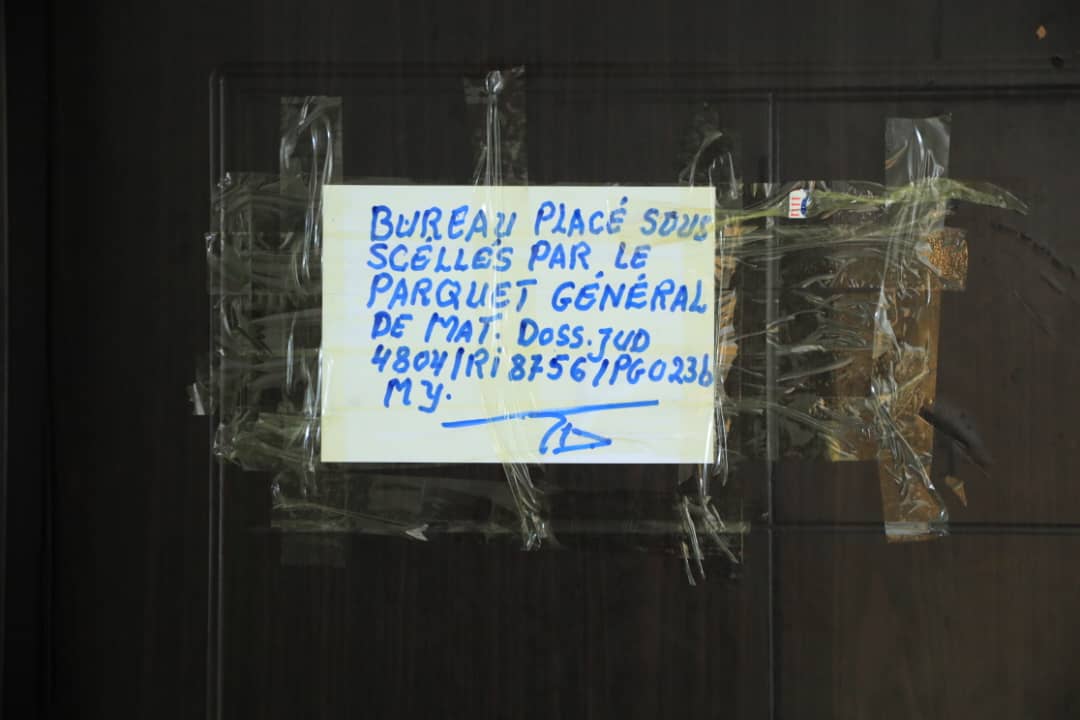 BUREAU PLACÉ SOUS
SCÉLLÉS PAR LE
PARQUET GÉNÉRAL
DE MAT. DOSS. JUD
4804/Ri 8756/PG023b
MY.